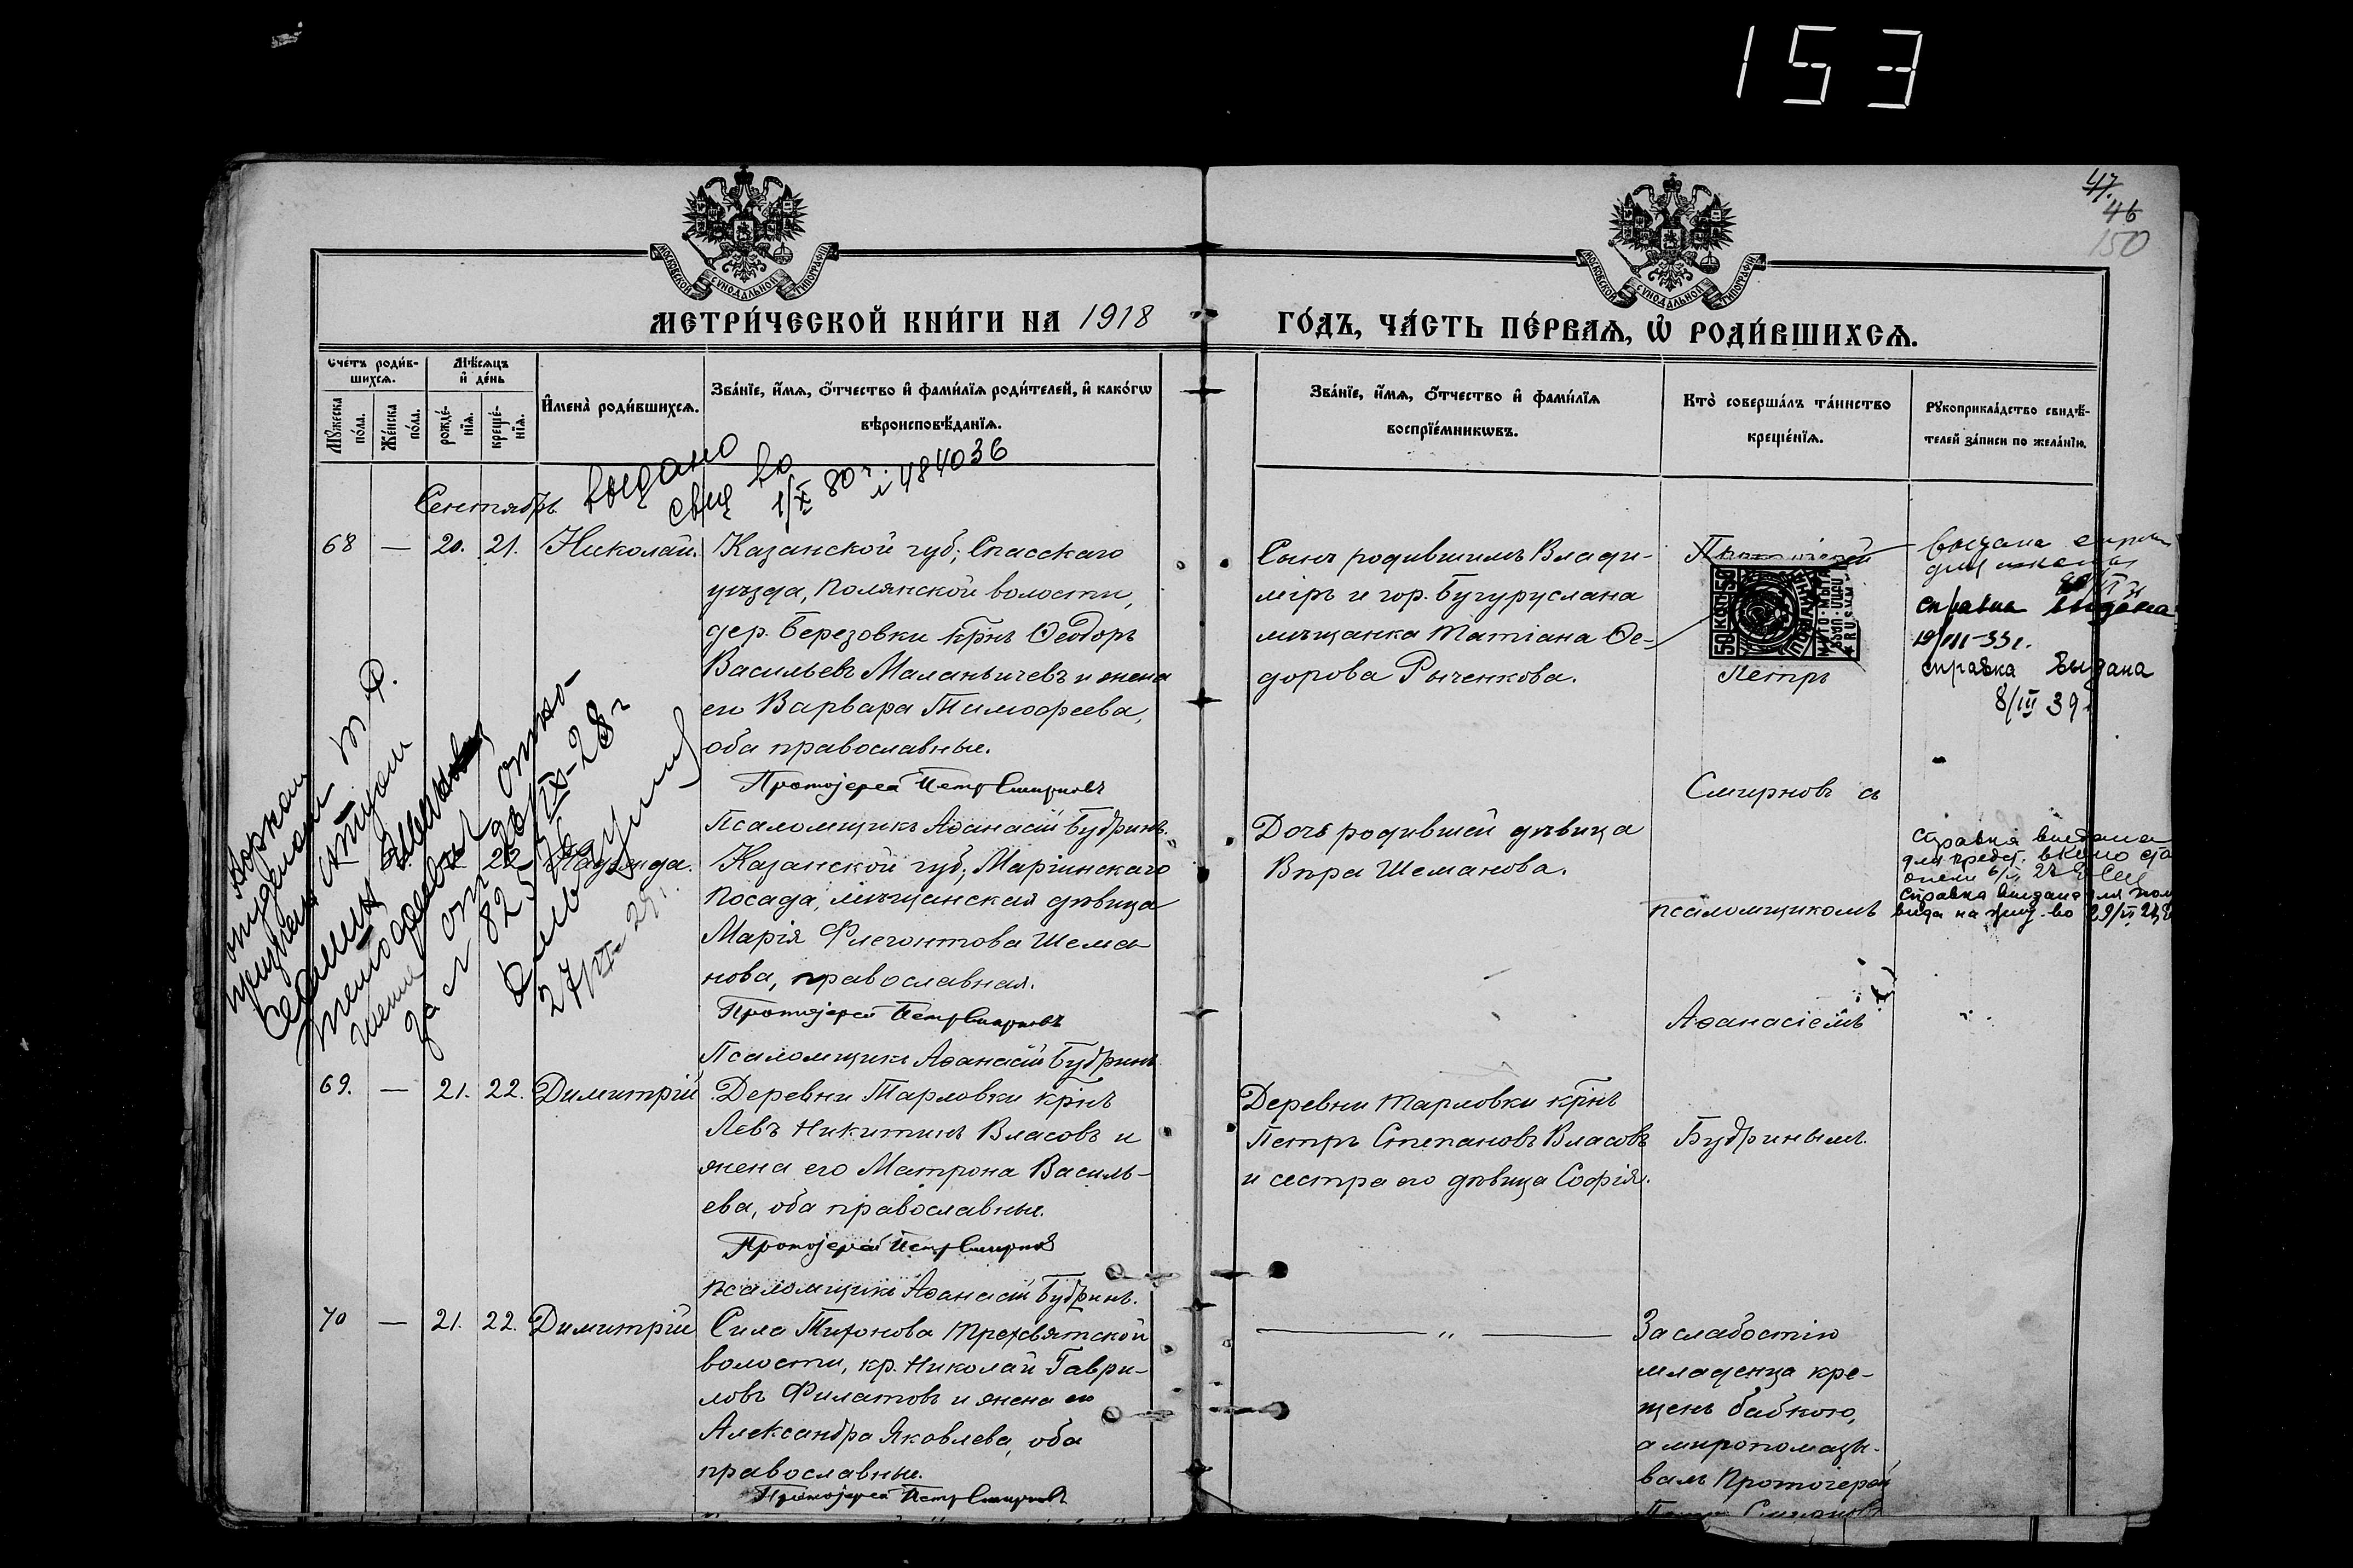 153
47.
46
150
МОСКОВСКОЙ СУНОДАЛЬНОЙ ТИПОГРАФІИ
МОСКОВСКОЙ СУНОДАЛЬНОЙ ТИПОГРАФІИ
МЕТРИ́ЧЕСКОЙ КНИ́ГИ НА 1918
ГО́ДЪ, ЧА́СТЬ ПЕ́РВАѦ, Ѡ҆ РОДИ́ВШИХСѦ.
Сче́тъ роди́в-
шихсѧ.
Му́жеска по́ла.
Же́нска по́ла.
Мѣ́сѧцъ и҆ де́нь
рожде́-нїѧ.
креще́-нїѧ.
И҆мена̀ роди́вшихсѧ.
Зва́нїе, и҆́мѧ, ѻ҆́тчество и҆ фами́лїѧ роди́телей, и҆ како́гѡ
вѣроисповѣ́данїѧ.
Зва́нїе, и҆́мѧ, ѻ҆́тчество и҆ фами́лїѧ
воспрїе́мникѡвъ.
Кто̀ соверша́лъ та́инство
креще́нїѧ.
Рꙋкоприкла́дство свидѣ́-
телей за́писи по жела́нїю.
выдано
свид во
1/X 80 г. 484036
Сентябрь.
68 — 20. 21. Николай.
Казанской губ; Спасскаго
уѣзда, Полянской волости,
дер. Березовки крнъ Ѳеодоръ
Васильевъ Маланьичевъ и жена
его Варвара Тимофеева,
оба православные.
Протоіерей Петръ Смирновъ
Псаломщикъ Аѳанасій Будринъ.
Сынъ родившимъ Влади-
міръ и гор. Бугуруслана
мѣщанка Татіана Ѳе-
дорова Рыченкова.
50 КОП 50
Петръ
Смирновъ съ
псаломщикомъ
Аѳанасіемъ
Будринымъ.
выдана
справка выдана
19/III-33г.
справка выдана
8/III 39
22 Надежда.
Казанской губ; Маріинскаго
посада, мѣщанская дѣвица
Марія Флегонтова Шема-
нова, православная.
Протоіерей Петръ Смирновъ
Псаломщикъ Аѳанасій Будринъ
Дочь родившей дѣвица
Вѣра Шеманова.
Справка выдана
справка выдана для
вида на жит-во 29/VI
отно-
за № 825
27/VI 29г.
69. — 21. 22. Димитрій
Деревни Тарловки крнъ
Левъ Никитинъ Власовъ и
жена его Матрона Василь-
ева, оба православные.
Протоіерей Петръ Смирновъ
псаломщикъ Аѳанасій Будринъ.
Деревни Тарловки крнъ
Петръ Степановъ Власовъ
и сестра его дѣвица Софія.
70 — 21. 22. Димитрій
Села Тихонова Трехсвятской
волости, кр. Николай Гаври-
ловъ Филатовъ и жена его
Александра Яковлева, оба
православные.
Протоіерей Петръ Смирновъ
— „ —
За слабостію
младенца кре-
щенъ бабкою,
а миропомазы-
валъ Протоіерей